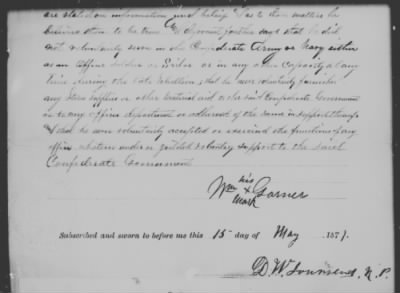 are stated on information and belief & as to those matters he
believes them to be true. & deponent further says that he did
not voluntarily serve in the Confederate Army or Navy either
as an officer soldier or sailor or in any other capacity at any
time during the late rebellion; that he never voluntarily furnished
any stores supplies or other material aid to the said Confederate Government
or to any officer department or adherent of the same in support thereof
& that he never voluntarily accepted or exercised the functions of any
office whatever under or yielded voluntary support to the said
Confederate Government
his
Wm x Garner
mark
Subscribed and sworn to before me this 15 day of May 1871.
D. W. Townsend, N. P.